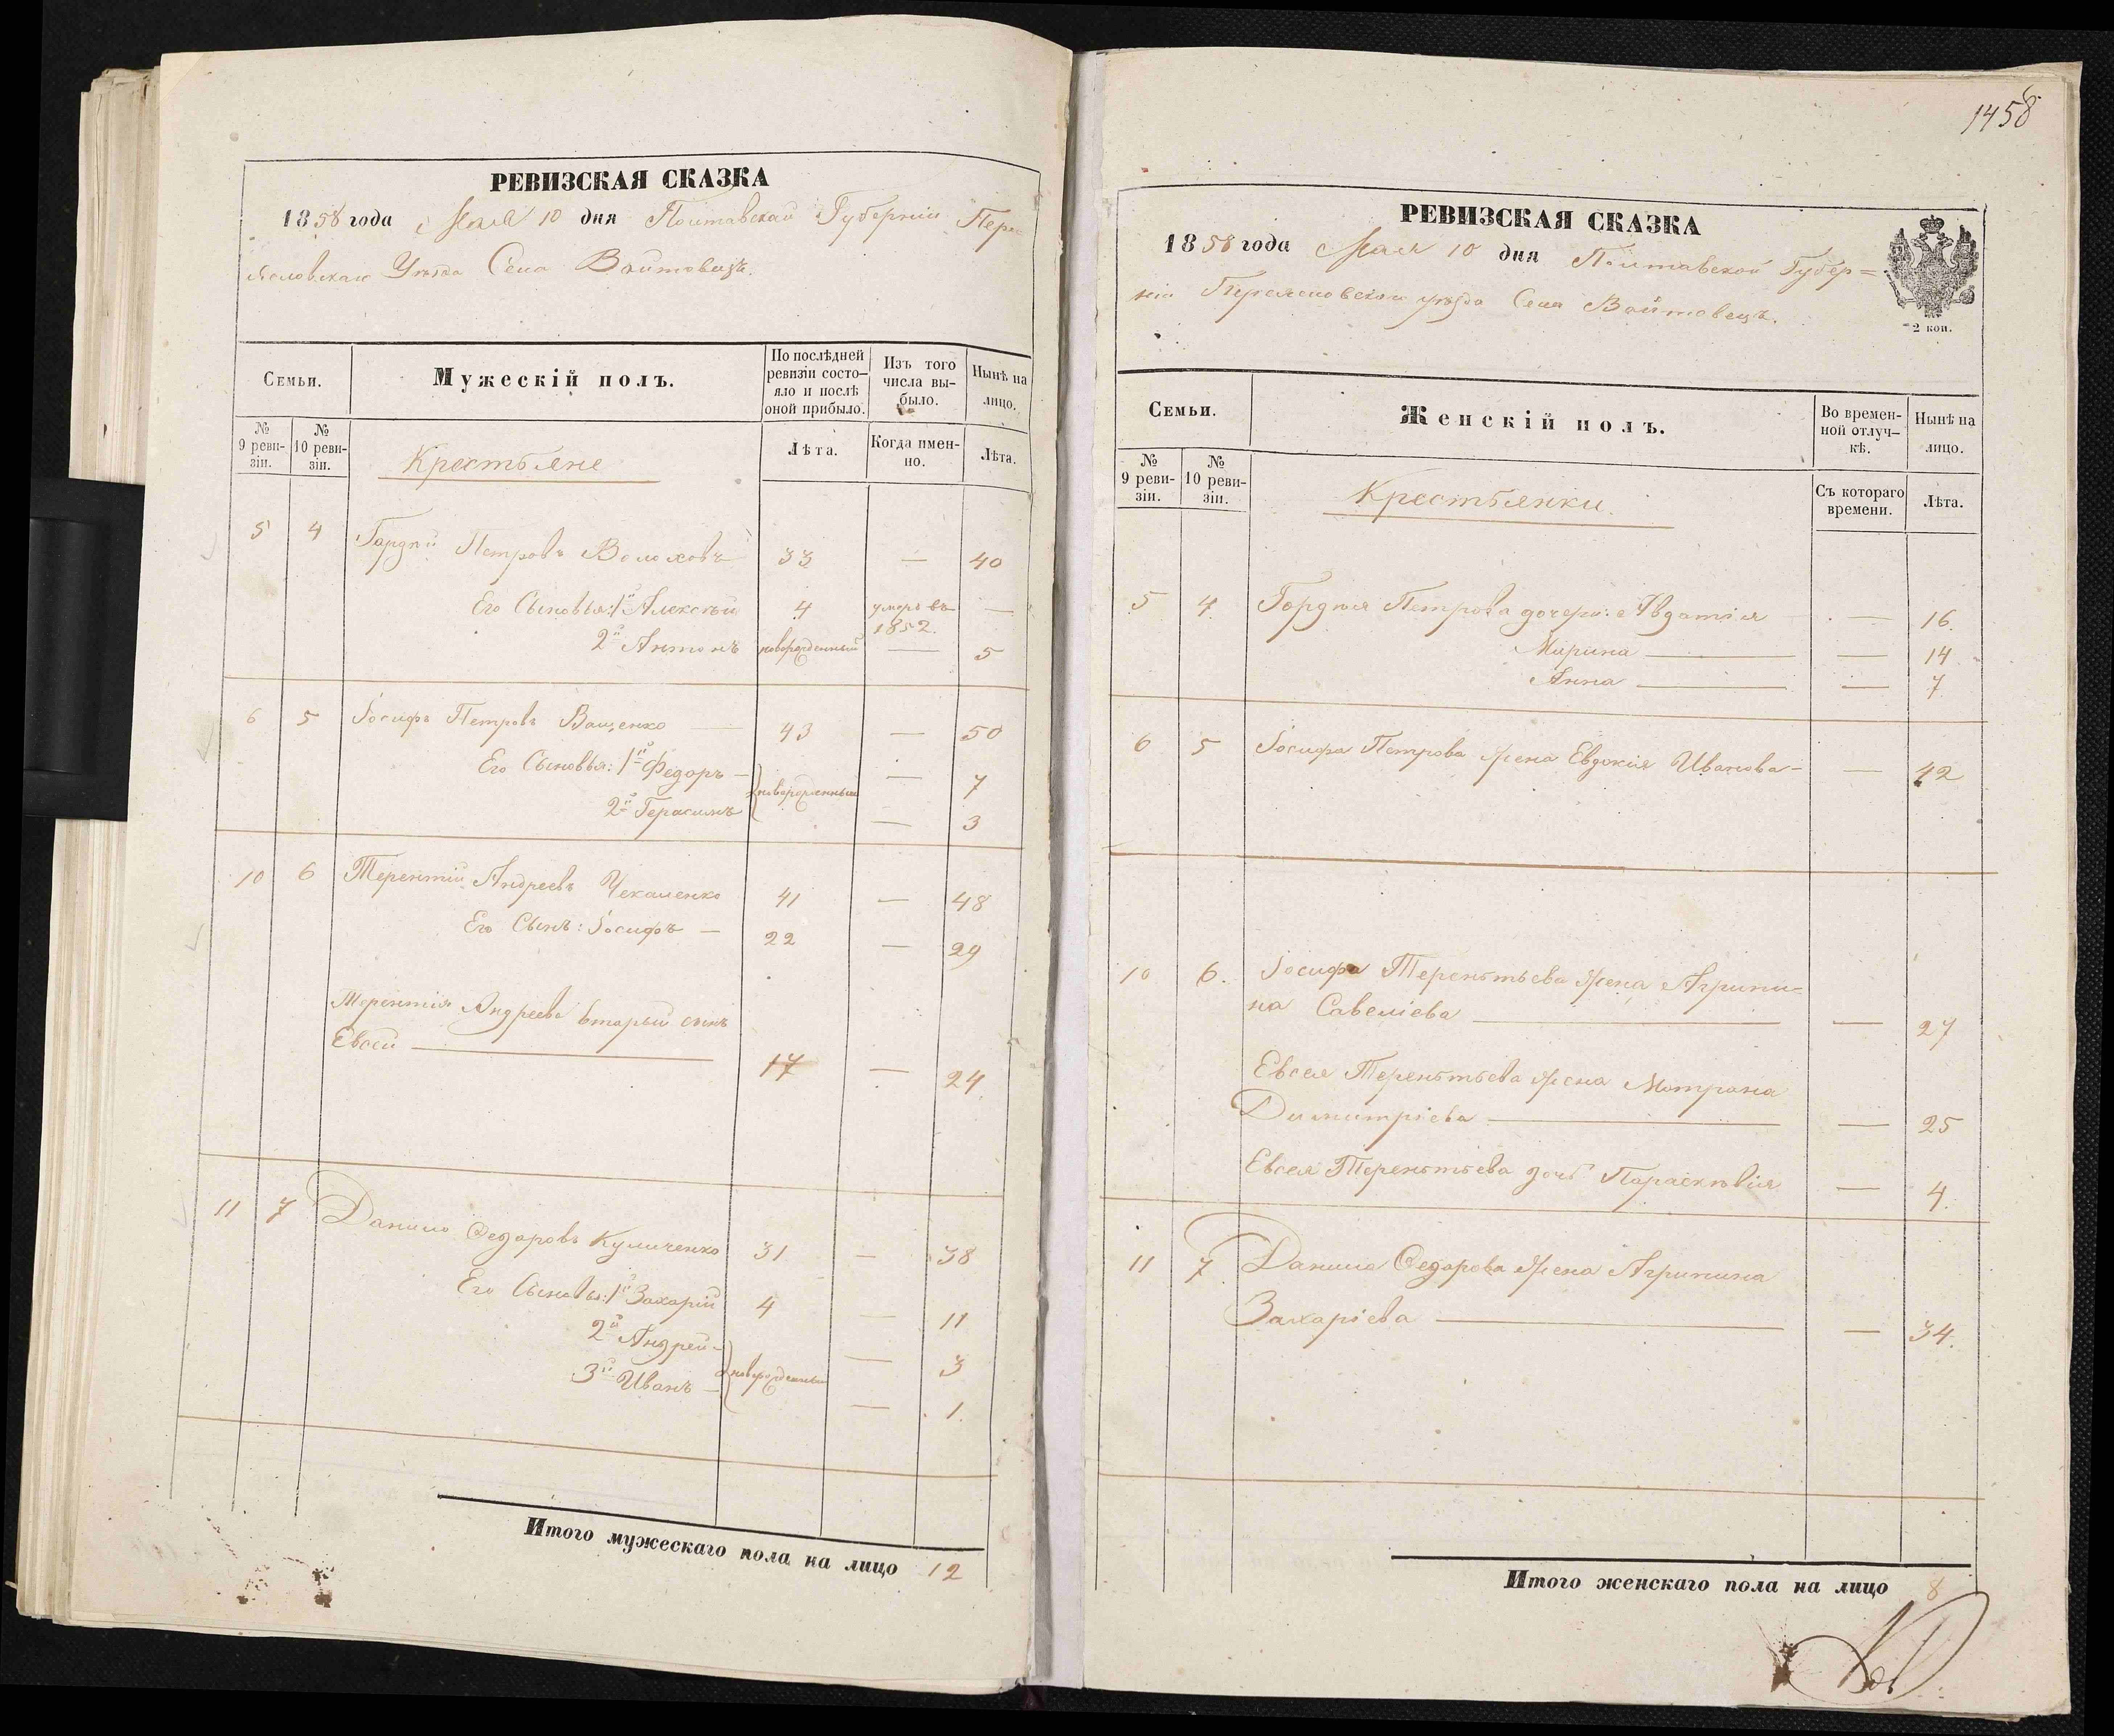 РЕВИЗСКАЯ СКАЗКА
1858 года Мая 10 дня Полтавской Губерніи Пере=
яславскаго Уезда Села Войтовецъ.
Семьи.
Мужескій полъ.
По послѣдней ревизіи состо-
яло и послѣ
оной прибыло.
Изъ того
числа вы-
было.
Нынѣ на
лицо.
№
9 реви-
зіи.
№
10 реви-
зіи.
Крестьяне
Лѣта.
Когда имен-
но.
Лѣта.
5 4 Гордѣй Петровъ Волоховъ 33 — 40
Его Сыновья: 1й Алексѣй 4 умеръ въ 1852. —
2й Антонъ новорожденный — 5
6 5 Іосифъ Петровъ Ващенко — 43 — 50
Его Сыновья: 1й Федоръ — новорожденные — 7
2й Герасимъ — 3
10 6 Терентій Андреевъ Чекаленко 41 — 48
Его Сынъ: Іосифъ — 22 — 29
Терентія Андреева вторый сынъ
Евсей — 17 — 24.
11 7 Данило Федоровъ Куличенко 31 — 38
Его Сыновья: 1й Захарій 4 — 11
2й Андрей — новорожденные — 3
3й Иванъ — — 1.
Итого мужескаго пола на лицо 12
1458
РЕВИЗСКАЯ СКАЗКА
1858 года Мая 10 дня Полтавской Губер=
ніи Переяславскаго уезда Села Войтовецъ.
2 коп.
Семьи.
Женскій полъ.
Во времен-
ной отлуч-
кѣ.
Нынѣ на
лицо.
№
9 реви-
зіи.
№
10 реви-
зіи.
Крестьянки.
Съ котораго
времени.
Лѣта.
5 4. Гордѣя Петрова дочери: Явдотія — 16.
Марина — — 14
Анна — — 7
6 5 Іосифа Петрова жена Евдокія Иванова — — 42
10 6. Іосифа Терентьева жена Агрипи-
на Савеліева — — 27
Евсея Терентьева жена Мотрона
Димитріева — — 25
Евсея Терентьева дочь Параскѣвія — 4.
11 7. Данила Федорова жена Агрипина
Захаріева — — 34.
Итого женскаго пола на лицо 8